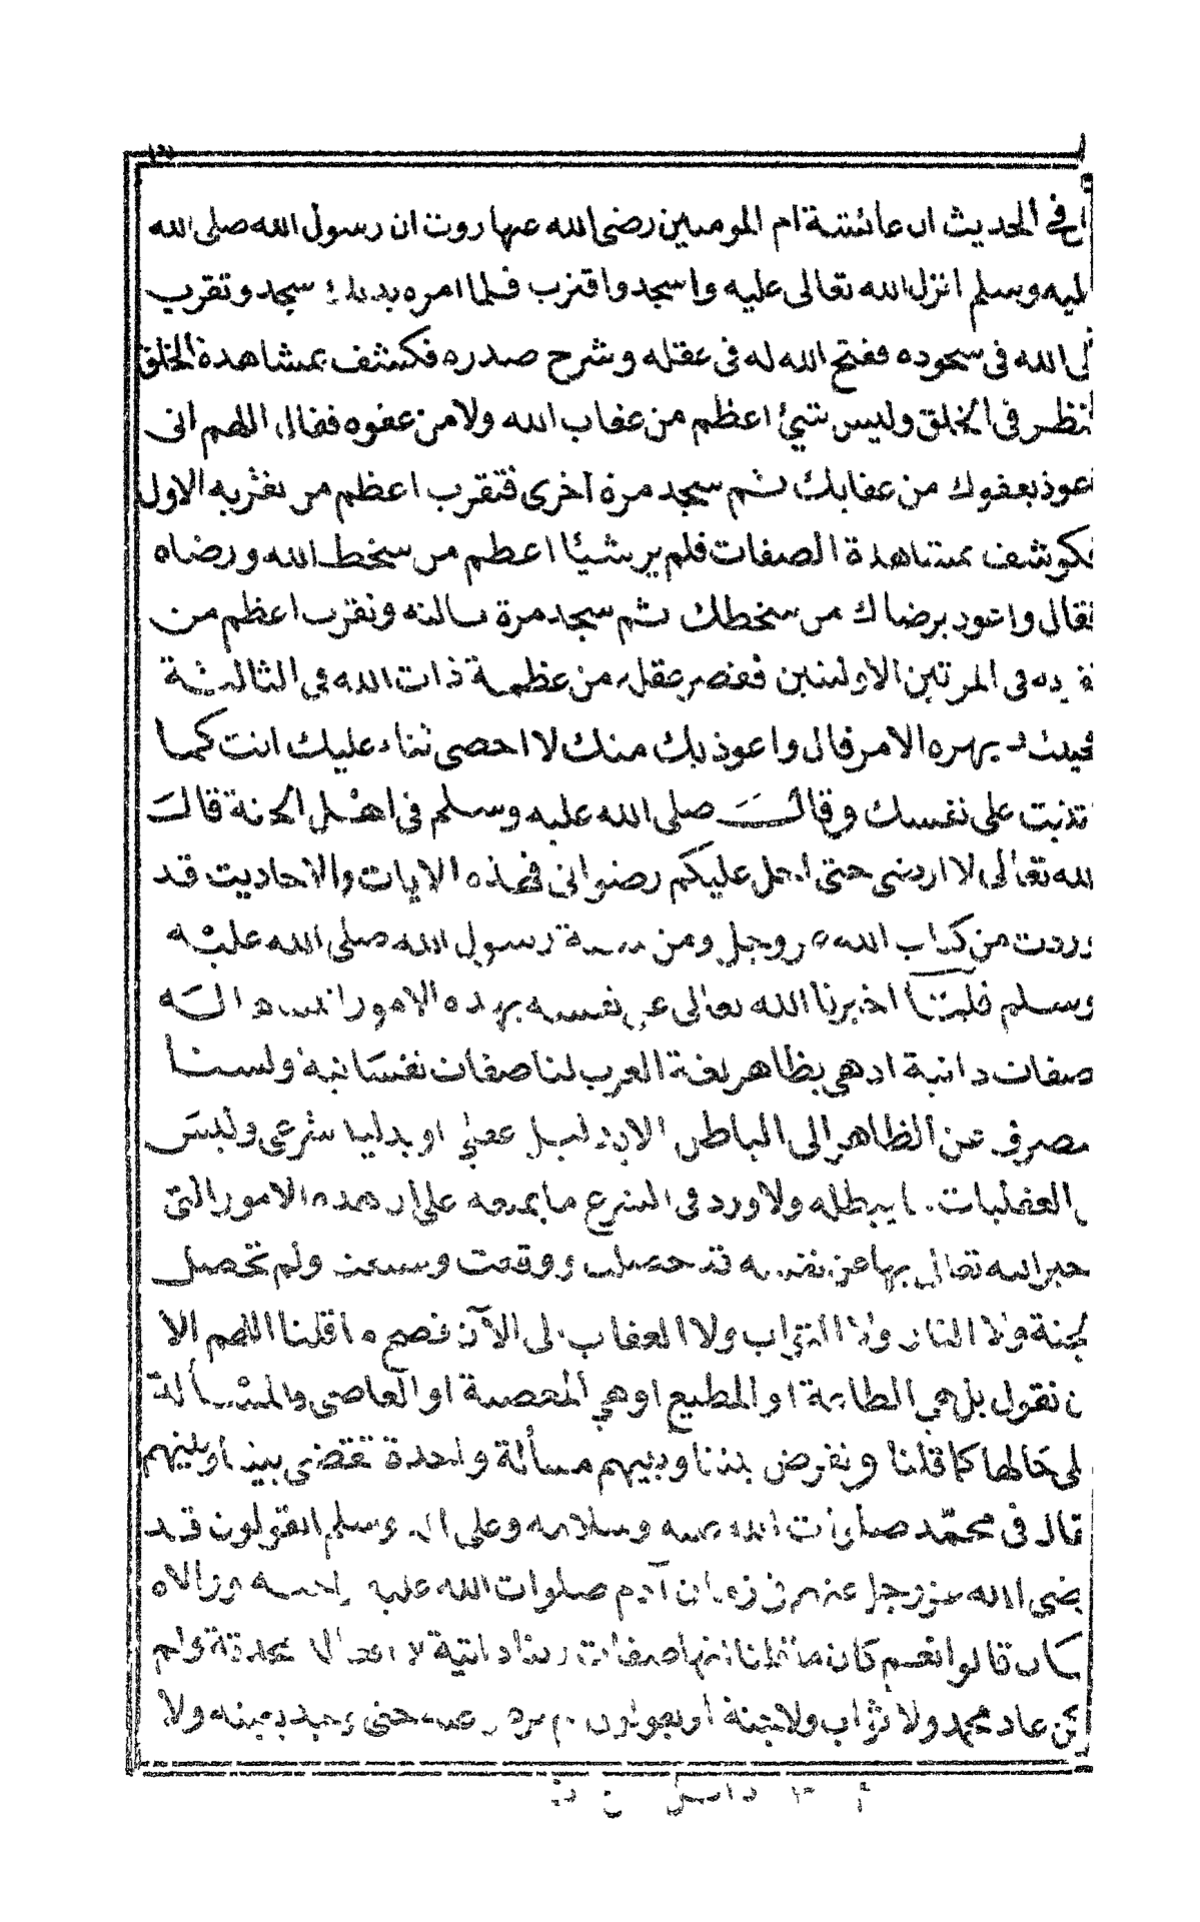 في الحديث ان عائشة ام المومنين رضى الله عنها روت ان رسول الله صلى الله
عليه وسلم انزل الله تعالى عليه واسجد واقترب فلما امره بذلك سجد وتقرب
الى الله فى سجوده ففتح الله له فى عقله وشرح صدره فكشف بمشاهدة الخلق
فنظر فى الخلق وليس شيئ اعظم من عقاب الله ولا من عفوه فقال اللهم انى
اعوذ بعفوك من عقابك ثم سجد مرة اخرى فتقرب اعظم من تقربه الاول
فكوشف بمشاهدة الصفات فلم ير شيئا اعظم من سخط الله ورضاه
فقال واعوذ برضاك من سخطك ثم سجد مرة ثالثه وتقرب اعظم من
فى المرتين الاوليتين فقصر عقله من عظمة ذات الله فى الثالثة
بهره الامر فقال واعوذ بك منك لا احصى ثناء عليك انت كما
اثنيت على نفسك وقال صلى الله عليه وسلم فى اهل الجنة قال
الله تعالى لا ارضى حتى احل عليكم رضوانى فهذه الايات والاحاديث قد
وردت من كتاب الله عز وجل ومن سنة رسول الله صلى الله عليه
وسلم فلما اخبرنا الله تعالى عن نفسه بهذه الامور
صفات ذاتية اذ هى بظاهر لغة العرب لنا صفات نفسانية ولسنا
نصرف عن الظاهر الى الباطن الا بدليل عقلي او بدليل شرعى وليس
العقليات ما يبطله ولا ورد فى الشرع ما يمنعه على ان هذه الامور التى
اخبر الله تعالى بها عن نفسه قد حصلت ووقعت وسبقت ولم تحصل
الجنة ولا النار ولا الثواب ولا العقاب الى الآن فصح ما قلنا اللهم الا
ان نقول بل هي الطاعة او المطيع او هي المعصية او العاصى والمسألة
على حالها كما قلنا ونفرض بيننا وبينهم مسألة واحدة تقضى بيننا وبينهم
يقال فى محمد صلوات الله عليه وسلامه وعلى اله وسلم اتقولون قد
رضى الله عز وجل عنه فى زمان آدم صلوات الله عليه
كان قالوا نعم كان ما قلنا انها صفات ذاتية لا
يكن عاد محمد ولا ثواب ولا جنة او يقولون لم يرض عنه حتى وجد بعينه ولا